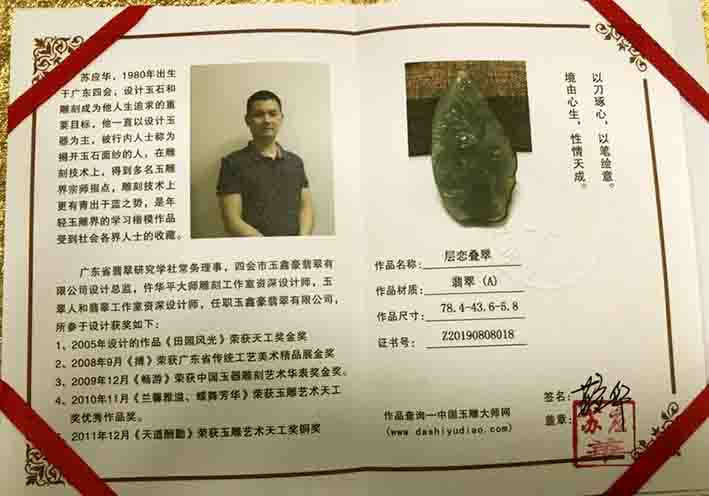 苏应华，1980年出生
于广东四会，设计玉石和
雕刻成为他人生追求的重
要目标，他一直以设计玉
器为主，被行内人士称为
揭开玉石面纱的人，在雕
刻技术上，得到多名玉雕
界宗师指点，雕刻技术上
更有青出于蓝之势，是年
轻玉雕界的学习楷模作品
受到社会各界人士的收藏。
广东省翡翠研究学社常务理事，四会市玉鑫豪翡翠有
限公司设计总监，许华平大师雕刻工作室资深设计师，玉
翠人和翡翠工作室资深设计师，任职玉鑫豪翡翠有限公司，
所参于设计获奖如下：
1、2005年设计的作品《田园风光》荣获天工奖金奖
2、2008年9月《搏》荣获广东省传统工艺美术精品展金奖
3、2009年12月《畅游》荣获中国玉器雕刻艺术华表奖金奖。
4、2010年11月《兰馨雅溢、蝶舞芳华》荣获玉雕艺术天工
奖优秀作品奖。
5、2011年12月《天道酬勤》荣获玉雕艺术天工奖铜奖
以刀琢心，以笔绘意。
境由心生，性情天成。
作品名称：层恋叠翠
作品材质：翡翠（A）
作品尺寸：78.4-43.6-5.8
证书号：Z20190808018
签名：
盖章：
作品查询一中国玉雕大师网
(www.dashiyudiao.com)